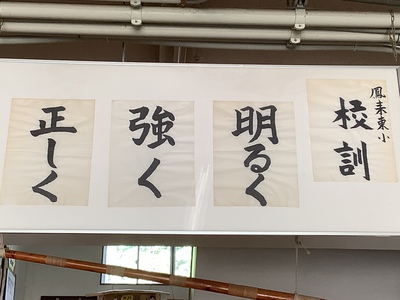 鳳来東小
校訓
明るく
強く
正しく